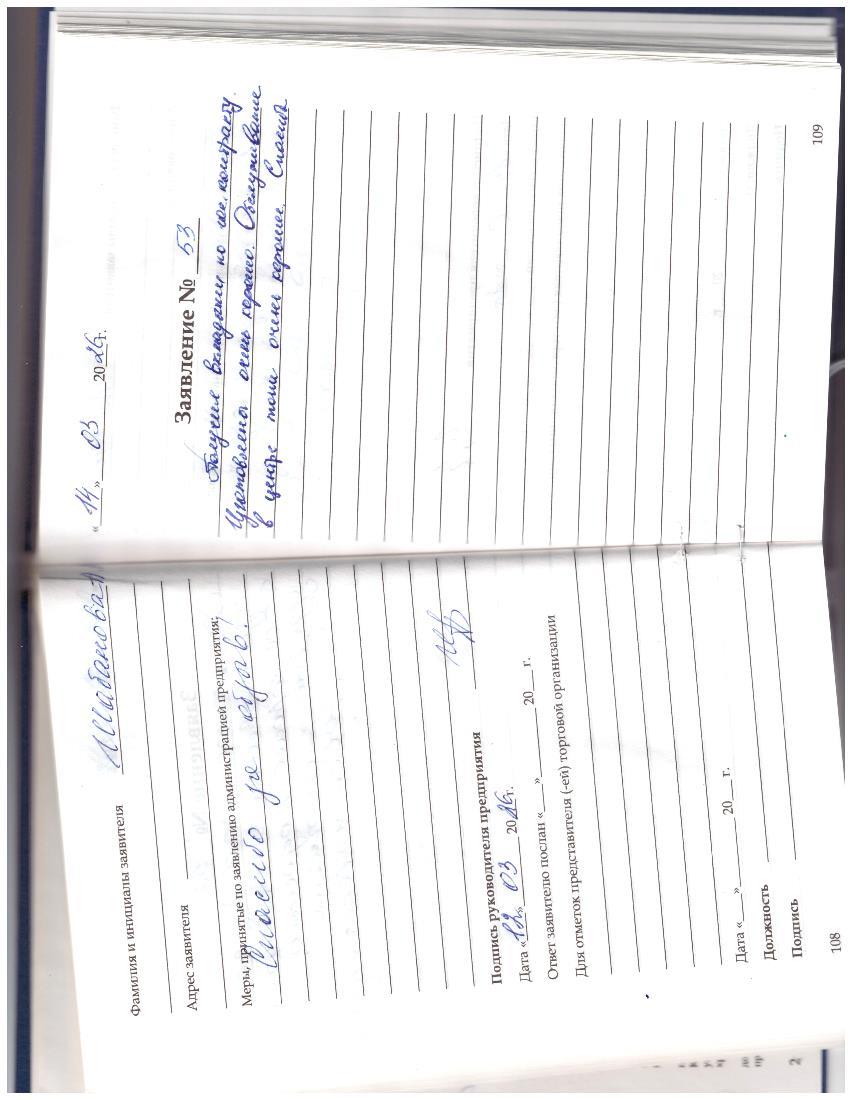 Фамилия и инициалы заявителя Шабанова Л
Адрес заявителя
Меры, принятые по заявлению администрацией предприятия:
Спасибо за отзыв!
Подпись руководителя предприятия
Дата «12» 03 2026г.
Ответ заявителю послан «___»________20___г.
Для отметок представителя (-ей) торговой организации
Дата «___»________20___г.
Должность
Подпись
108
«14» 03 2026г.
Заявление № 53
Получил вкладыши по гос. контракту.
Изготовлены очень хорошо. Обслуживание
в центре тоже очень хорошее. Спасибо
109
2